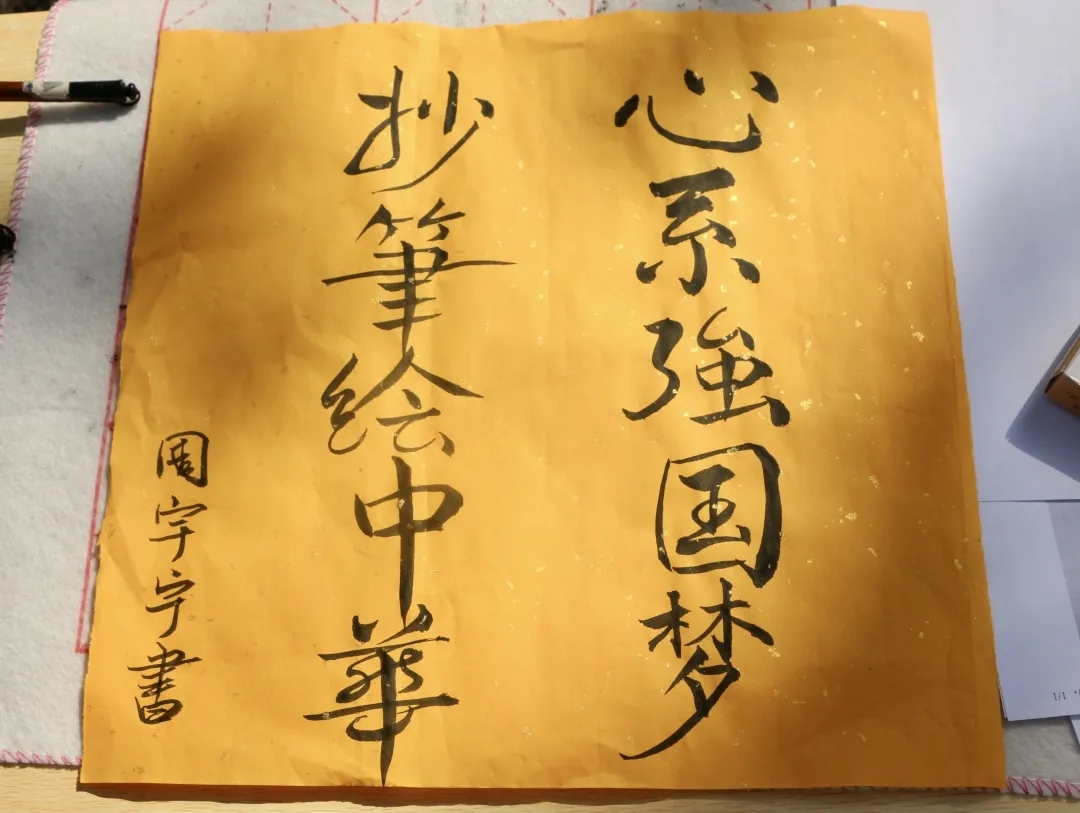 心系強国梦
抄筆绘中華
周宇宇書
1/1